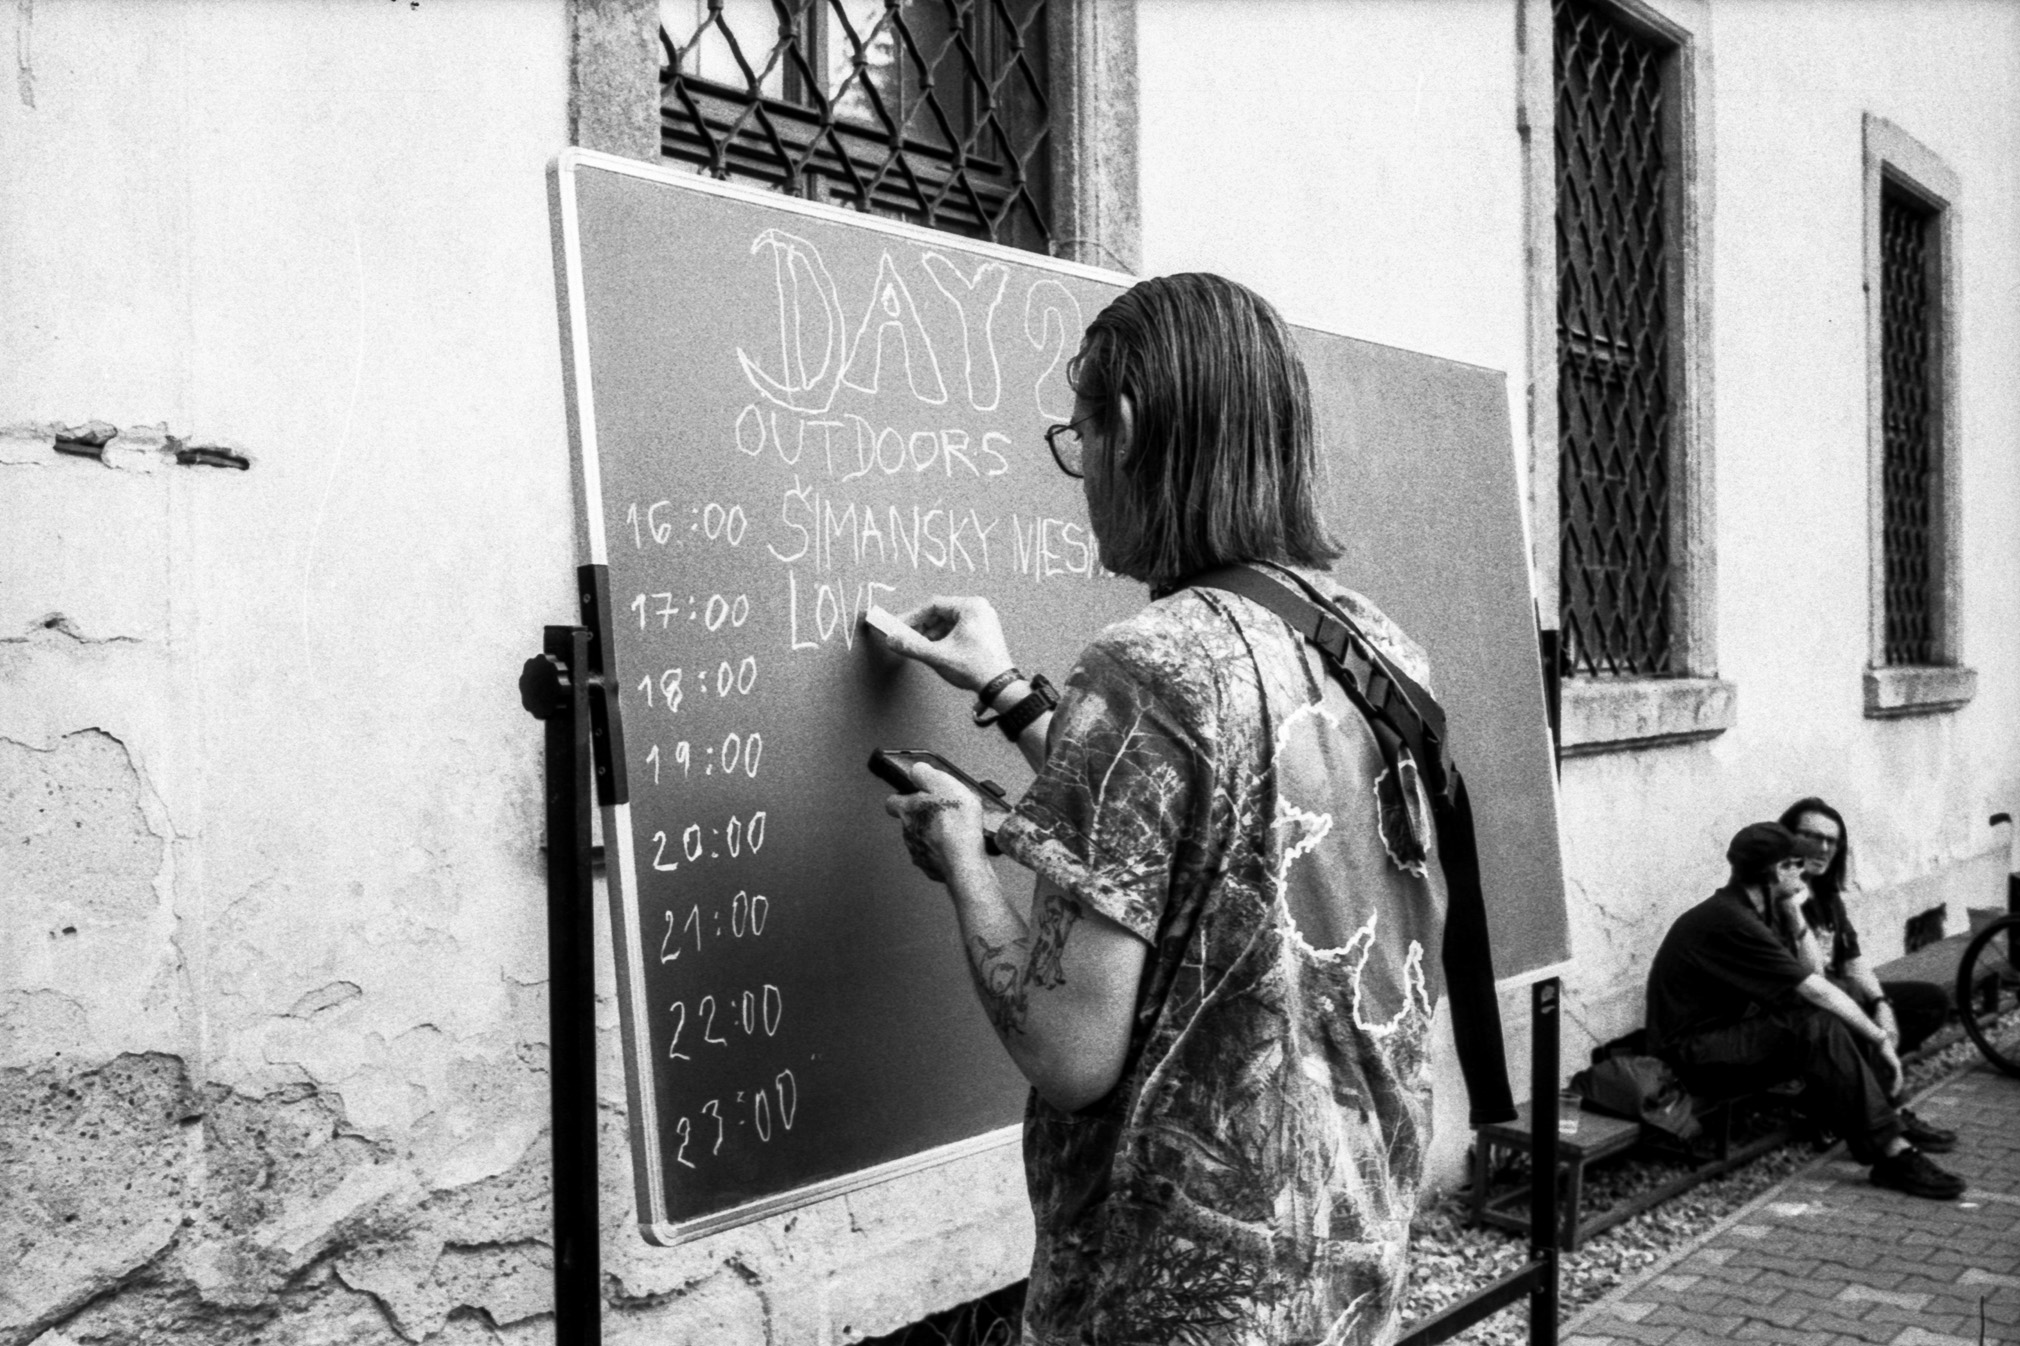 DAY 2
OUTDOORS
16:00 ŠIMANSKY
17:00 LOVE
18:00
19:00
20:00
21:00
22:00
23:00